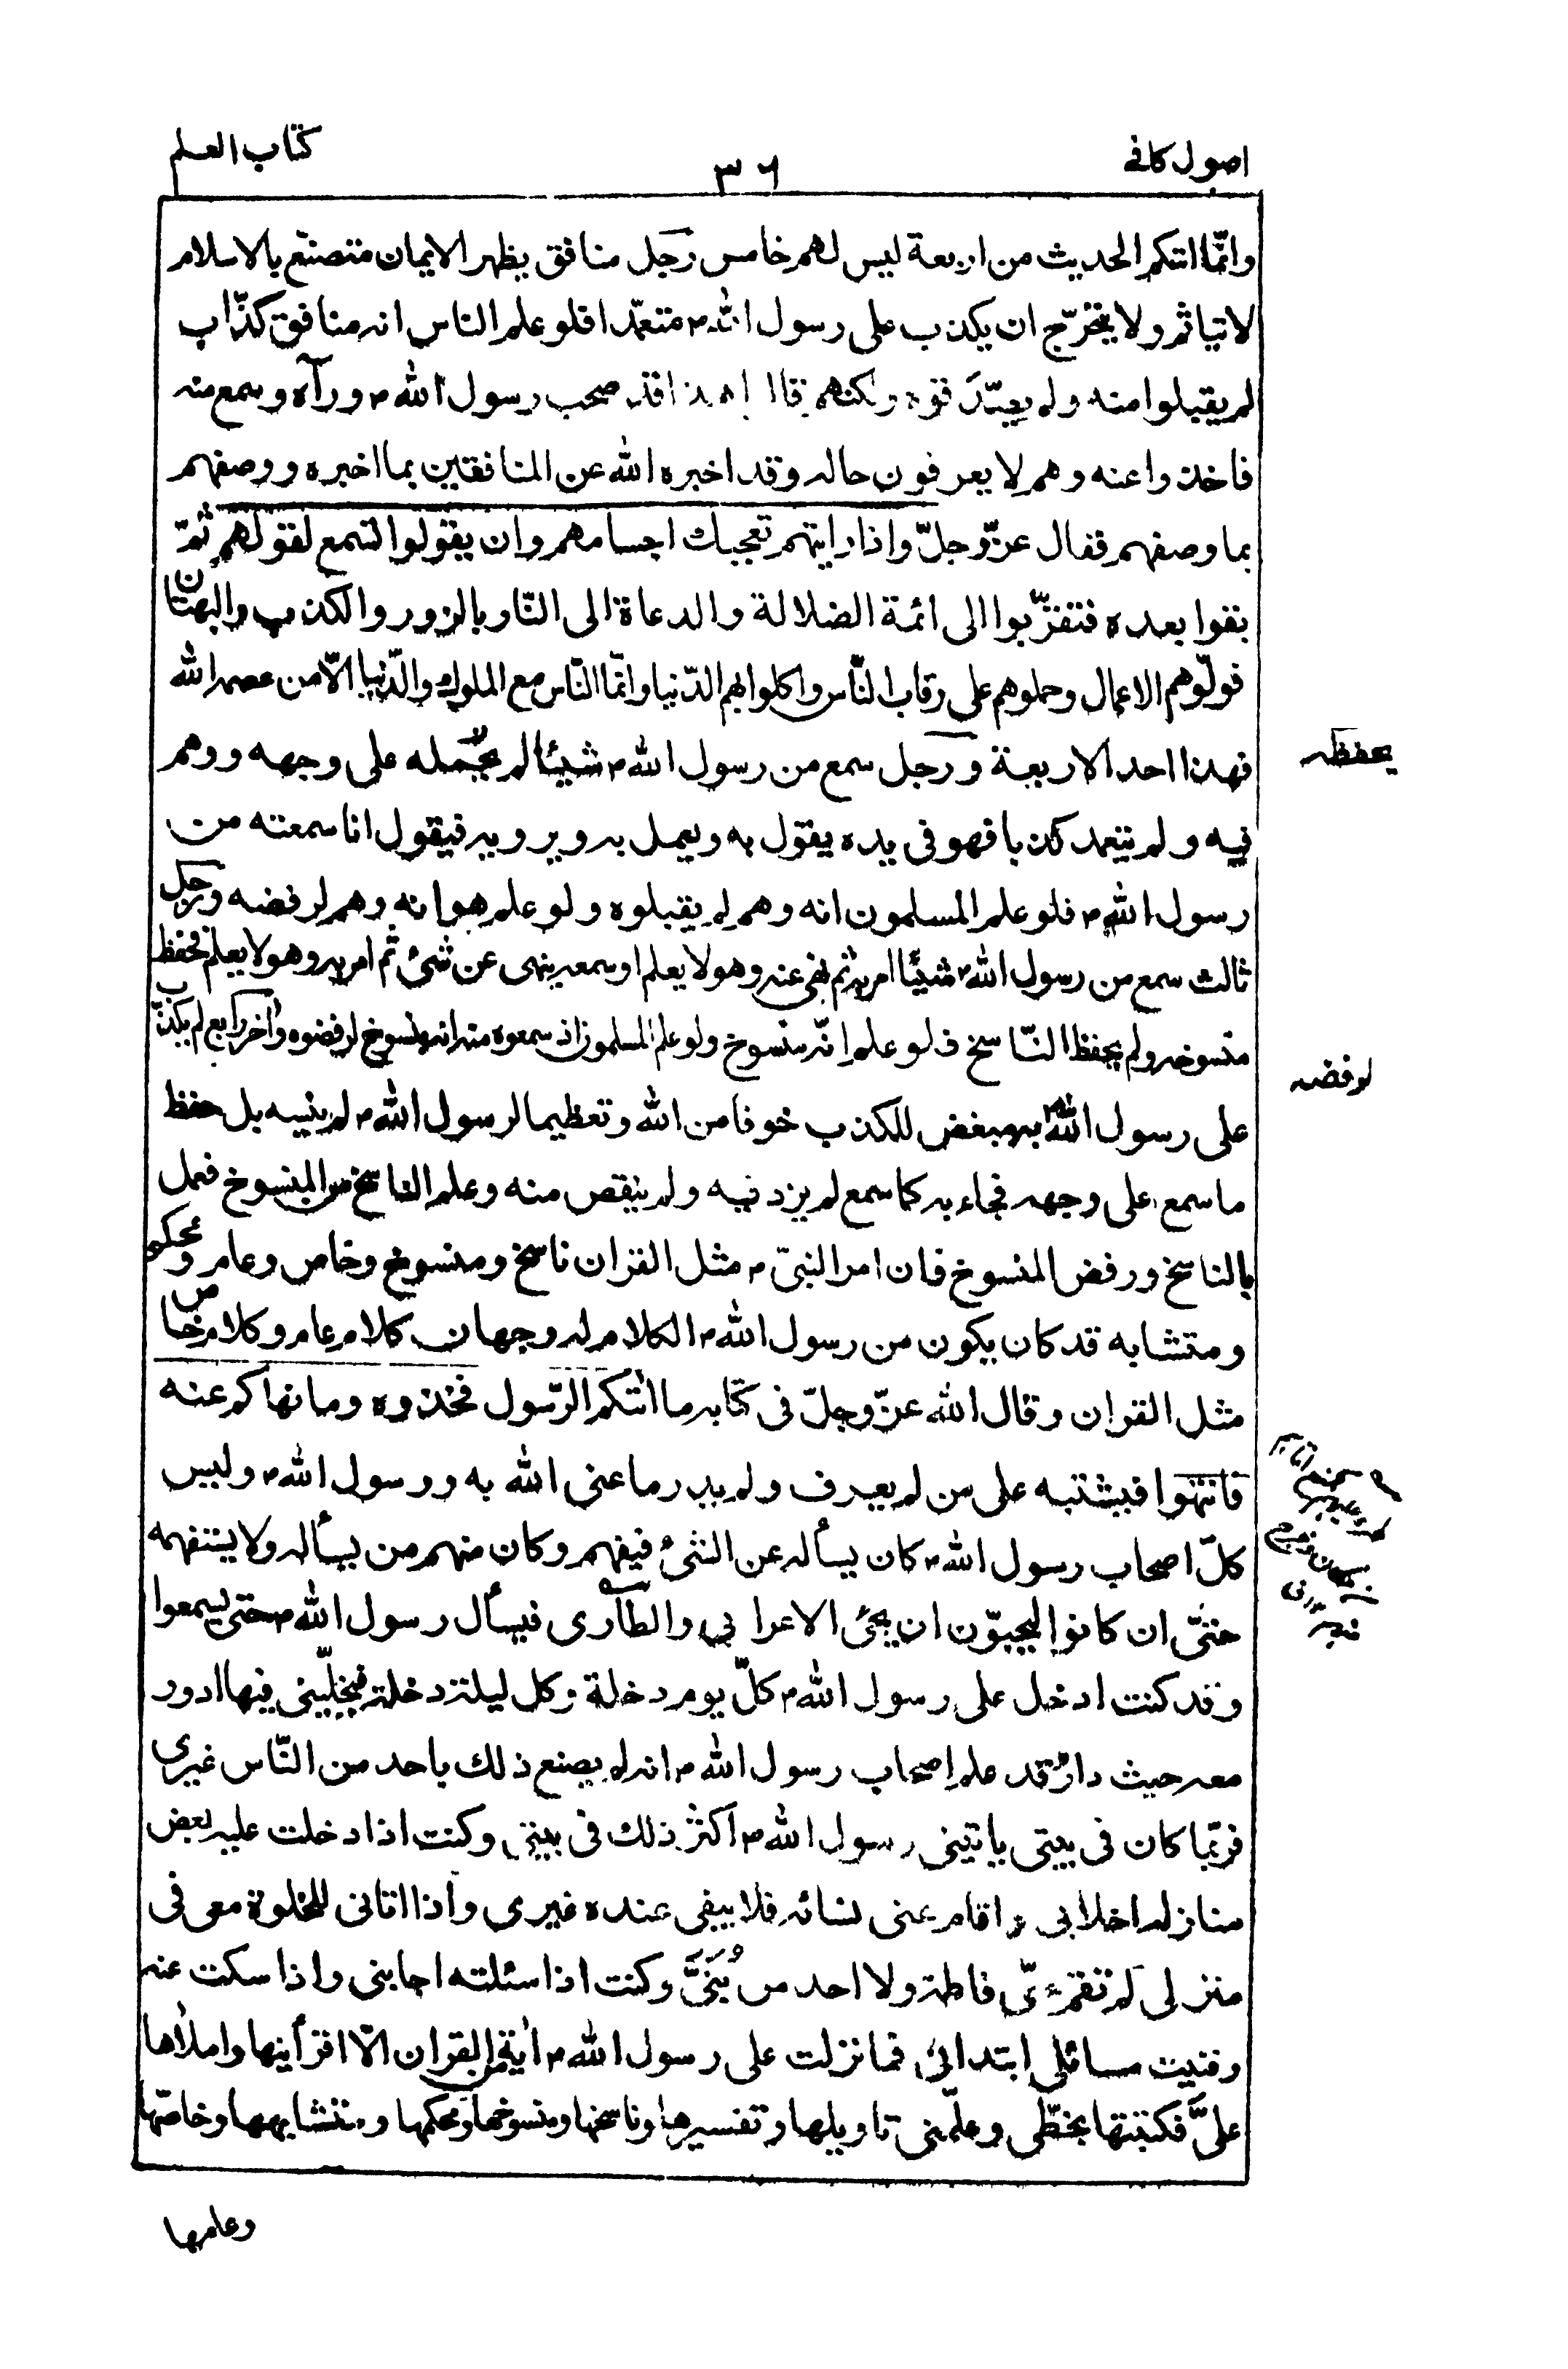 اصول كافے
٣٦
كتاب العلم
وانّما اتتكم الحديث من اربعة ليس لهم خامس رجل منافق يظهر الايمان متصنّع بالاسلام
لا يتاثم ولا يتحرّج ان يكذب على رسول الله ص متعمّدا فلو علم الناس انه منافق كذّاب
لم يقبلوا منه ولم يصدّقوه ولكنهم قالوا هذا قد صحب رسول الله ص ورآه وسمع منه
فاخذوا عنه وهم لا يعرفون حاله وقد اخبره الله عن المنافقين بما اخبره ووصفهم
بما وصفهم فقال عزّ وجلّ واذا رايتهم تعجبك اجسامهم وان يقولوا تسمع لقولهم ثمّ
بقوا بعده فتقرّبوا الى ائمة الضلالة والدعاة الى النّار بالزور والكذب والبهتان
فولّوهم الاعمال وحملوهم على رقاب النّاس واكلوا بهم الدّنيا وانّما النّاس مع الملوك والدّنيا الّا من عصمه الله
فهذا احد الاربعة ورجل سمع من رسول الله ص شيئا لم يحمله على وجهه ووهم
يحفظه
فيه ولم يتعمد كذبا فهو فى يده يقول به ويعمل به ويرويه فيقول انا سمعته من
رسول الله ص فلو علم المسلمون انه وهم لم يقبلوه ولو علم هو انه وهم لرفضه ورجل
ثالث سمع من رسول الله ص شيئا امر به ثم نهى عنه وهو لا يعلم او سمعه ينهى عن شئ ثم امر به وهو لا يعلم فحفظ
منسوخه ولم يحفظ النّاسخ فلو علم انّه منسوخ ولو علم المسلمون اذ سمعوه منه انه منسوخ لرفضوه وآخر رابع لم يكذب
لرفضه
على رسول الله ص مبغض للكذب خوفا من الله وتعظيما لرسول الله ص لم ينسه بل حفظ
ما سمع على وجهه فجاء به كما سمع لم يزد فيه ولم ينقص منه وعلم الناسخ من المنسوخ فعمل
بالناسخ ورفض المنسوخ فان امر النبىّ ص مثل القران ناسخ ومنسوخ وخاص وعام ومحكم
ومتشابه قد كان يكون من رسول الله ص الكلام له وجهان كلام عام وكلام خاص
مثل القران وقال الله عزّ وجلّ فى كتابه ما اتٰكم الرّسول فخذوه وما نهاكم عنه
فانتهوا فيشتبه على من لم يعرف ولم يدر ما عنى الله به ورسول الله ص وليس
كلّ اصحاب رسول الله ص كان يسأله عن الشئ فيفهم وكان منهم من يسأله ولا يستفهمه
حتّى ان كانوا ليحبّون ان يجئ الاعرابي والطاري فيسأل رسول الله ص حتى يسمعوا
وقد كنت ادخل على رسول الله ص كلّ يوم دخلة وكل ليلة دخلة فيخلّينى فيها ادور
معه حيث دار قد علم اصحاب رسول الله ص انه لم يصنع ذلك باحد من النّاس غيرى
فربّما كان فى بيتى ياتينى رسول الله ص اكثر ذلك فى بيتى وكنت اذا دخلت عليه بعض
منازله اخلابى واقام عنى نسائه فلا يبقى عنده غيرى واذا اتانى للخلوة معى فى
منزلى لم تقم عنّى فاطمة ولا احد من بنىّ وكنت اذا سئلته اجابنى واذا سكت عنه
وفنيت مسائلى ابتدانى فما نزلت على رسول الله ص اية من القران الّا اقرأنيها واملأها
علىّ فكتبتها بخطّى وعلّمنى تاويلها وتفسيرها وناسخها ومنسوخها ومحكمها ومتشابهها وخاصّها
وعامها